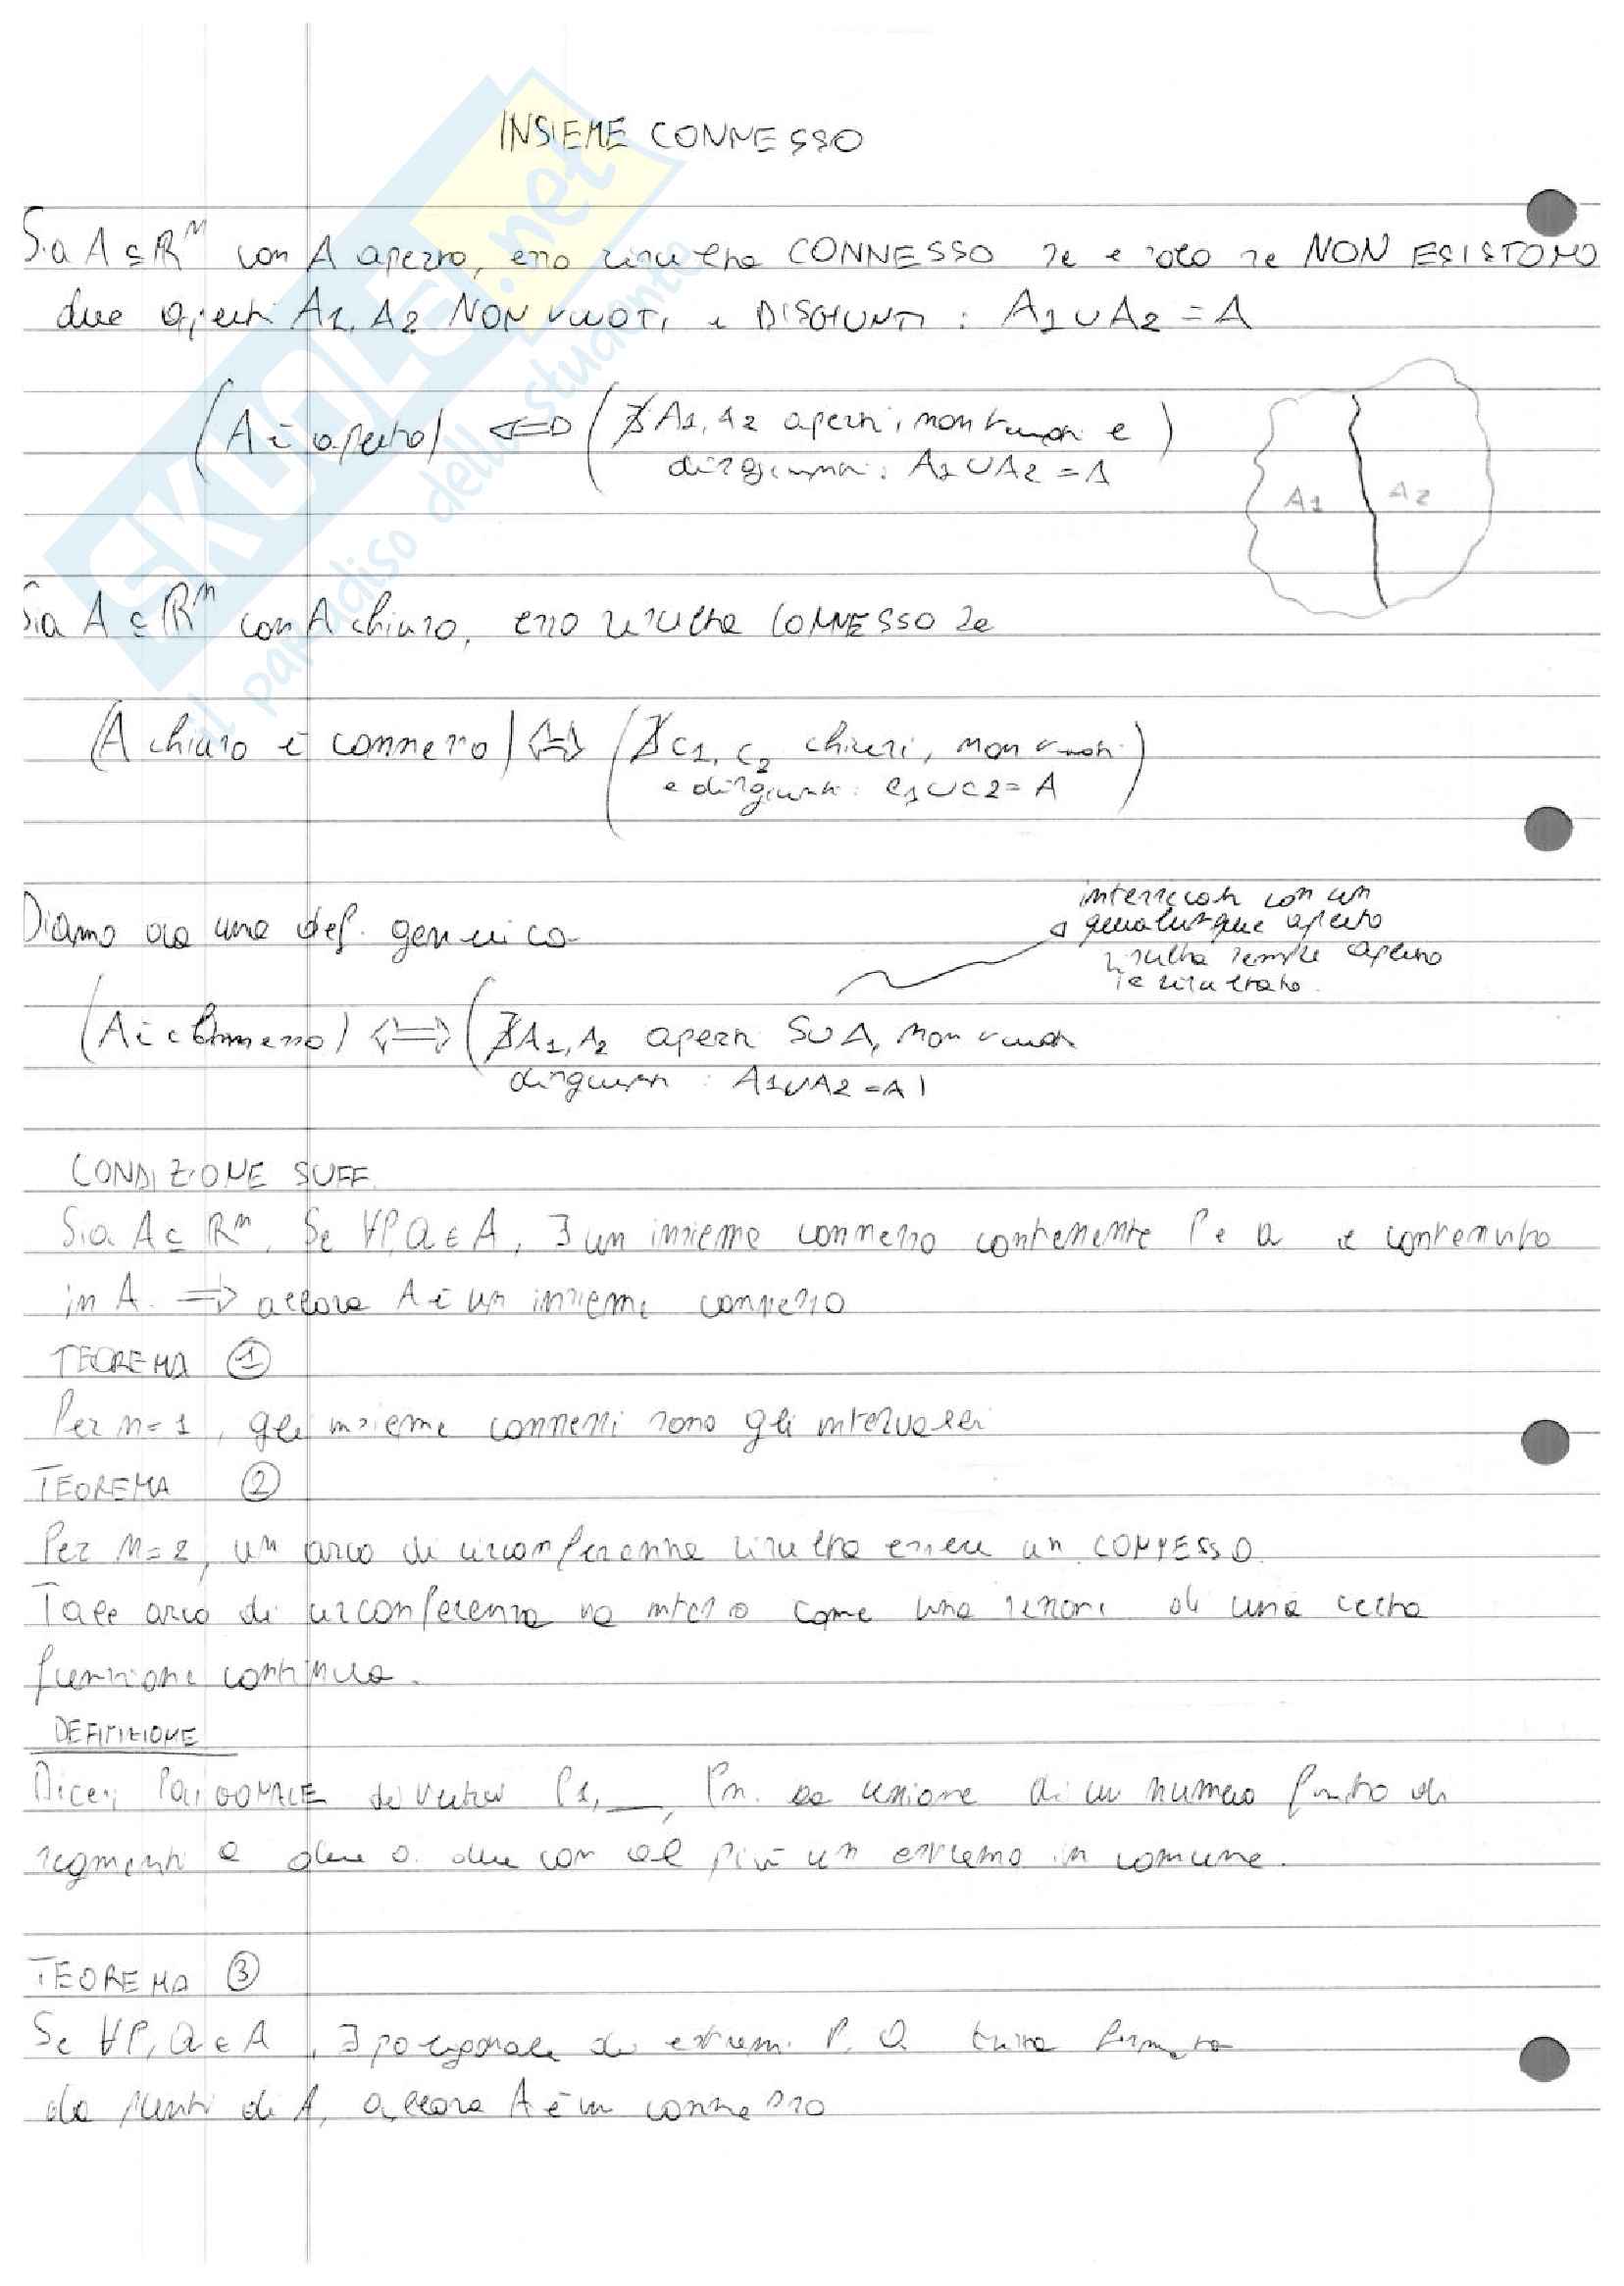 INSIEME CONNESSO
Sia A ⊆ ℝⁿ con A aperto, esso risulta CONNESSO se e solo se NON ESISTONO
due aperti A1, A2 NON VUOTI e DISGIUNTI : A1 ∪ A2 = A
(A è aperto) ⇔ (∄ A1, A2 aperti, non vuoti e
disgiunti : A1 ∪ A2 = A)
A1 A2
Sia A ⊆ ℝⁿ con A chiuso, esso risulta CONNESSO se
(A chiuso è connesso) ⇔ (∄ C1, C2 chiusi, non vuoti
e disgiunti : C1 ∪ C2 = A)
Diamo ora una def. generica
intersecati con un
qualunque aperto
risulta sempre aperto
il risultato.
(A è connesso) ⇔ (∄ A1, A2 aperti SU A, non vuoti
disgiunti : A1 ∪ A2 = A)
CONDIZIONE SUFF.
Sia A ⊆ ℝⁿ. Se ∀P, Q ∈ A, ∃ un insieme connesso contenente P e Q e contenuto
in A. ⇒ allora A è un insieme connesso
TEOREMA ①
Per n=1, gli insieme connessi sono gli intervalli
TEOREMA ②
Per n=2, un arco di circonferenza risulta essere un CONNESSO.
Tale arco di circonferenza va inteso come una di una certa
funzione continua.
DEFINIZIONE
Dicesi POLIGONALE di vertici P1, __, Pn. unione di un numero finito di
segmenti a due a due con al più un estremo in comune.
TEOREMA ③
Se ∀P, Q ∈ A, ∃ poligonale di estremi P, Q tutta formata
da punti di A, allora A è un connesso
SKUOLA.net
il paradiso dello studente